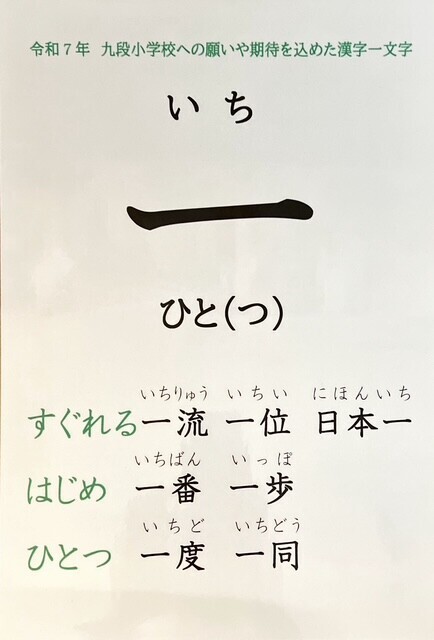 令和７年 九段小学校への願いや期待を込めた漢字一文字
いち
一
ひと(つ)
いちりゅう いちい にほんいち
すぐれる一流 一位 日本一
いちばん いっぽ
はじめ 一番 一歩
いちど いちどう
ひとつ 一度 一同